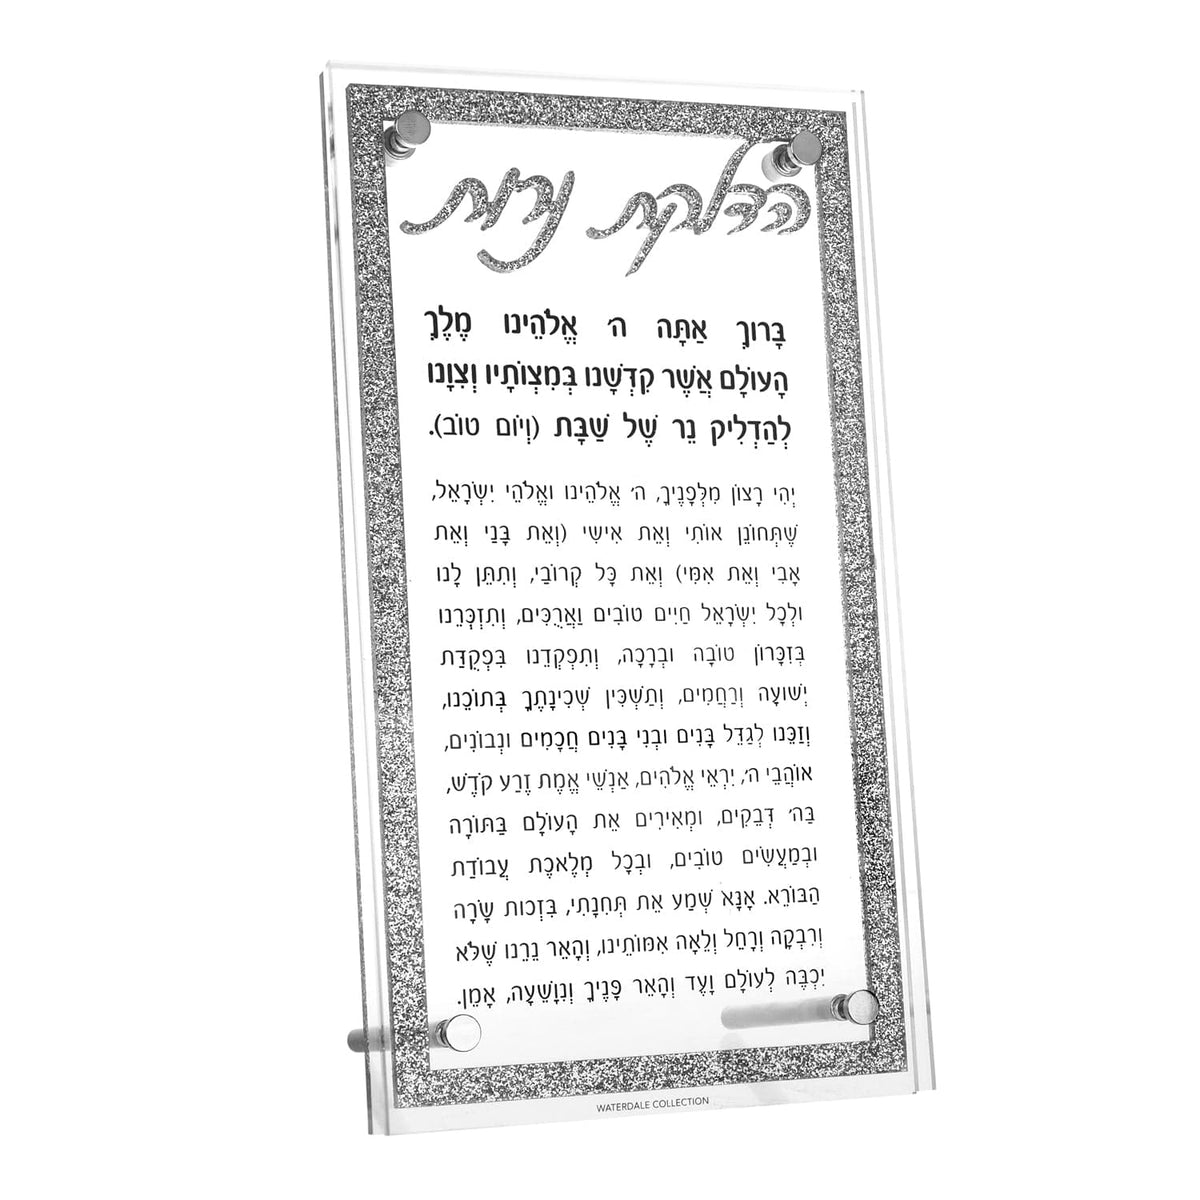 הדלקת נרות
בָּרוּךְ אַתָּה ה׳ אֱלֹהֵינוּ מֶלֶךְ
הָעוֹלָם אֲשֶׁר קִדְּשָׁנוּ בְּמִצְוֹתָיו וְצִוָּנוּ
לְהַדְלִיק נֵר שֶׁל שַׁבָּת (וְיוֹם טוֹב).
יְהִי רָצוֹן מִלְּפָנֶיךָ, ה׳ אֱלֹהֵינוּ וֵאלֹהֵי יִשְׂרָאֵל,
שֶׁתְּחוֹנֵן אוֹתִי וְאֵת אִישִׁי (וְאֵת בָּנַי וְאֵת
אָבִי וְאֵת אִמִּי) וְאֵת כָּל קְרוֹבַי, וְתִתֵּן לָנוּ
וּלְכָל יִשְׂרָאֵל חַיִּים טוֹבִים וַאֲרֻכִּים, וְתִזְכְּרֵנוּ
בְּזִכָּרוֹן טוֹבָה וּבְרָכָה, וְתִפְקְדֵנוּ בִּפְקֻדַּת
יְשׁוּעָה וְרַחֲמִים, וְתַשְׁכִּין שְׁכִינָתְךָ בְּתוֹכֵנוּ,
וְזַכֵּנוּ לְגַדֵּל בָּנִים וּבְנֵי בָנִים חֲכָמִים וּנְבוֹנִים,
אוֹהֲבֵי ה׳, יִרְאֵי אֱלֹהִים, אַנְשֵׁי אֱמֶת זֶרַע קֹדֶשׁ,
בַּה׳ דְּבֵקִים, וּמְאִירִים אֵת הָעוֹלָם בַּתּוֹרָה
וּבְמַעֲשִׂים טוֹבִים, וּבְכָל מְלֶאכֶת עֲבוֹדַת
הַבּוֹרֵא. אָנָּא שְׁמַע אֵת תְּחִנָּתִי, בִּזְכוּת שָׂרָה
וְרִבְקָה וְרָחֵל וְלֵאָה אִמּוֹתֵינוּ, וְהָאֵר נֵרֵנוּ שֶׁלֹּא
יִכְבֶּה לְעוֹלָם וָעֶד וְהָאֵר פָּנֶיךָ וְנִוָּשֵׁעָה, אָמֵן.
WATERDALE COLLECTION